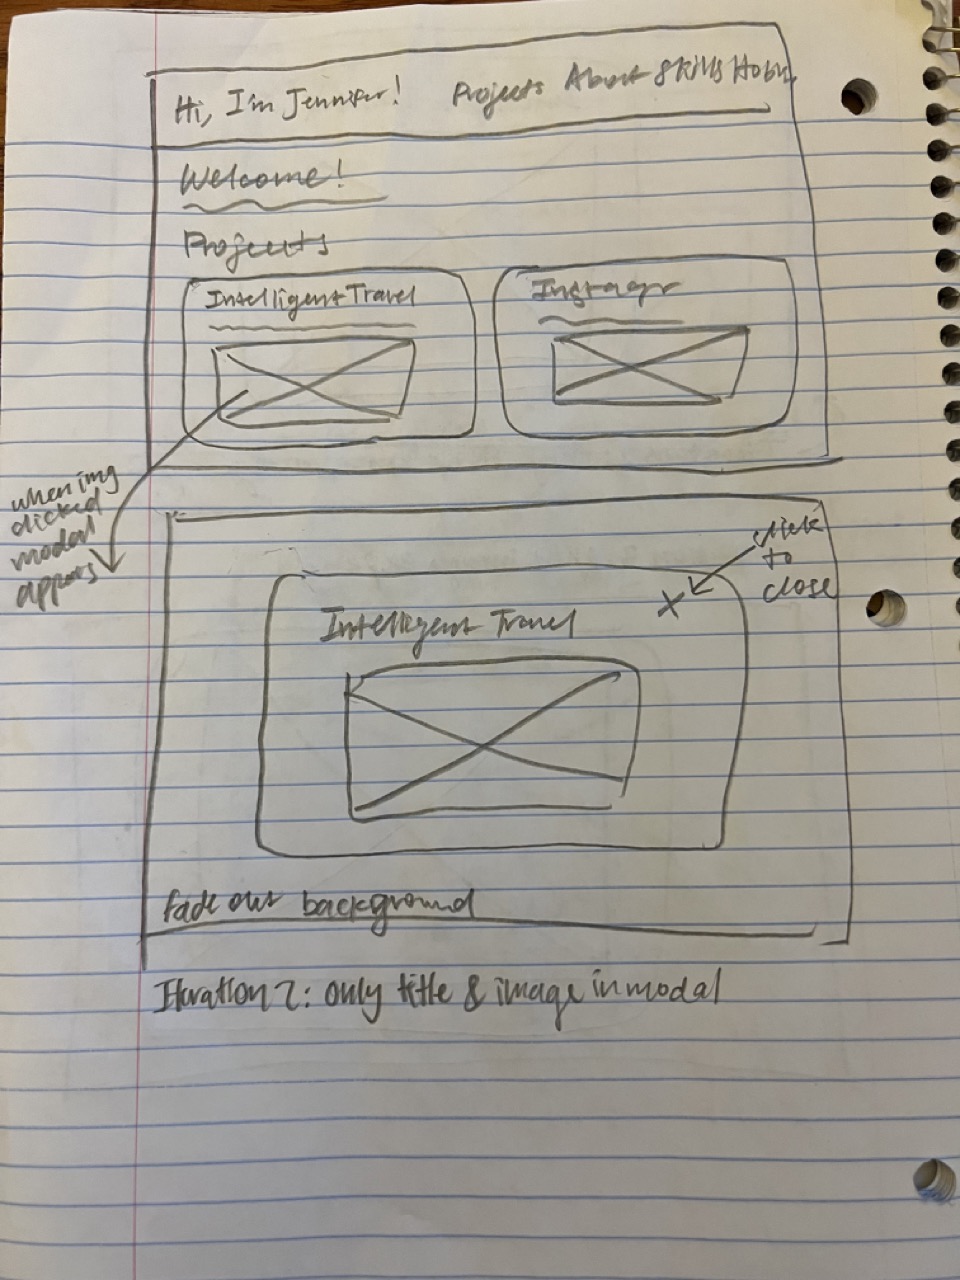 Hi, I'm Jennifer! Projects About Skills
Welcome!
Projects
Intelligent Travel
when img
clicked
modal
appears
click
to
close
Intelligent Travel
X
fade out background
Iteration 2: only title & image in modal